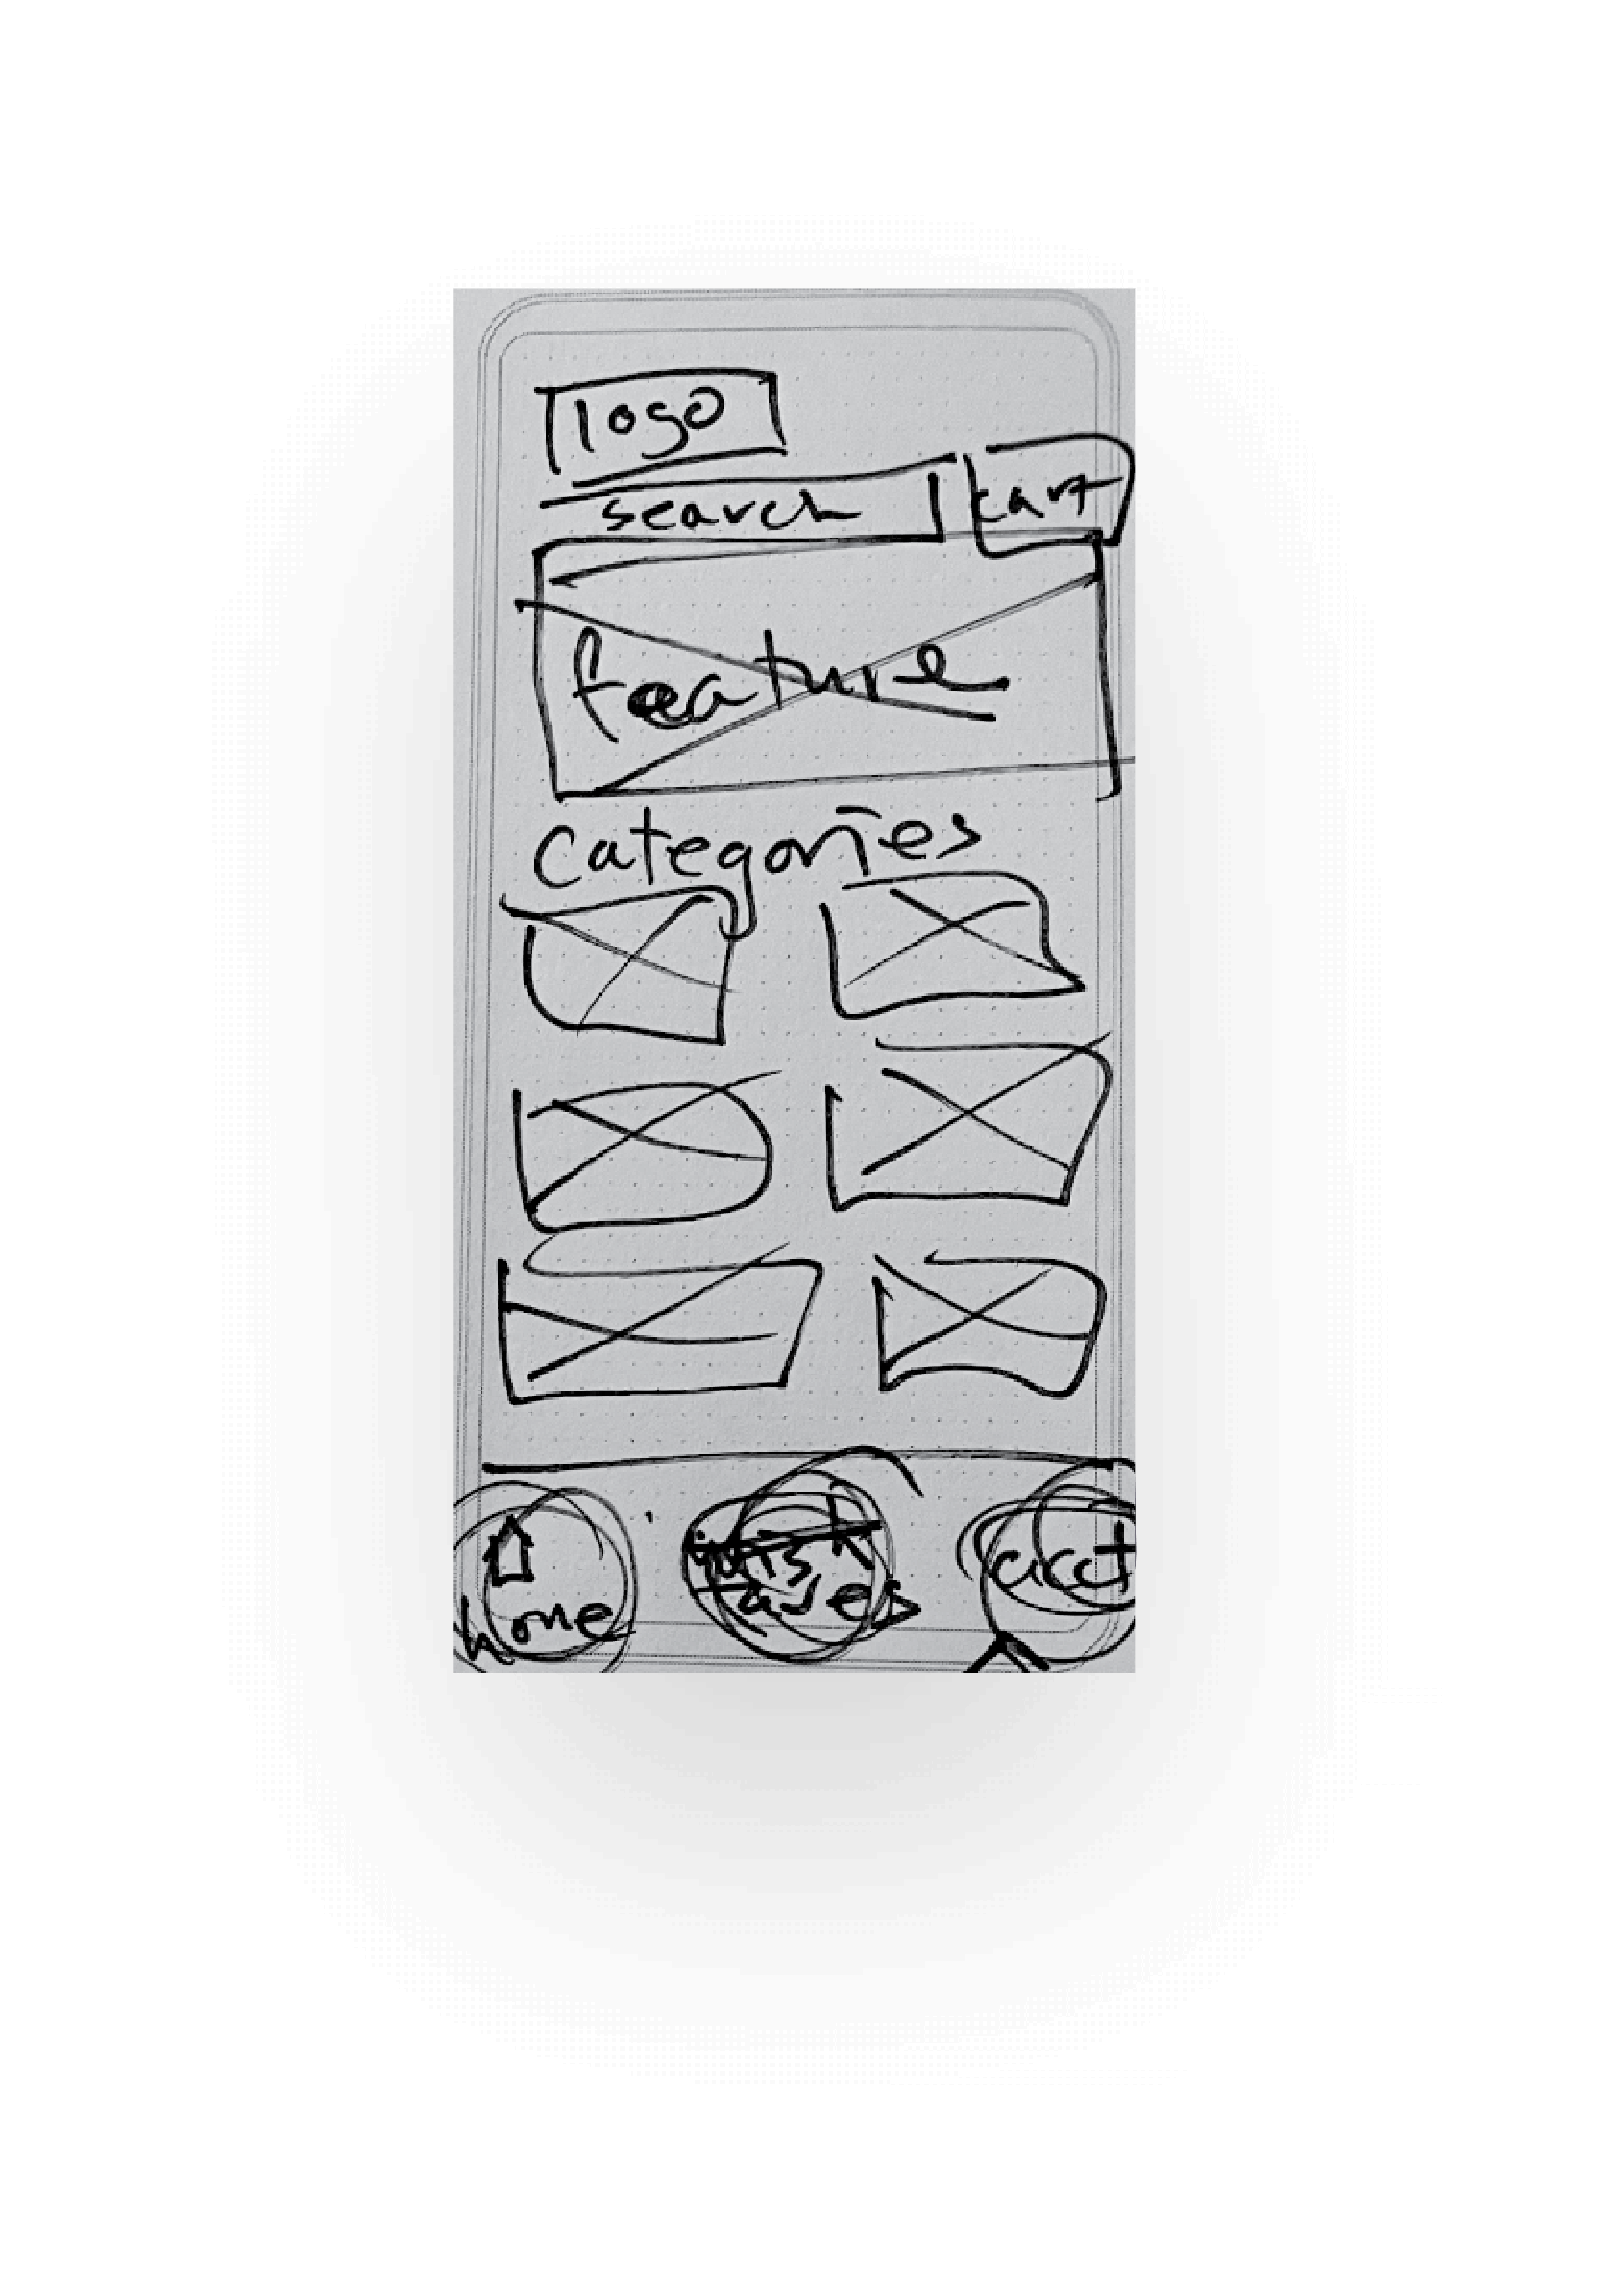 logo
search cart
feature
categories
home acct